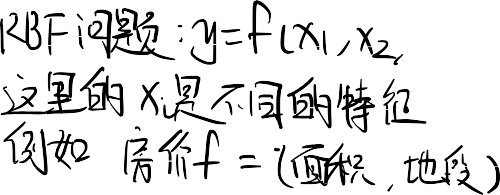 RBF问题:y=f(x1,x2,
这里的xi是不同的特征
例如 房价f=(面积,地段)